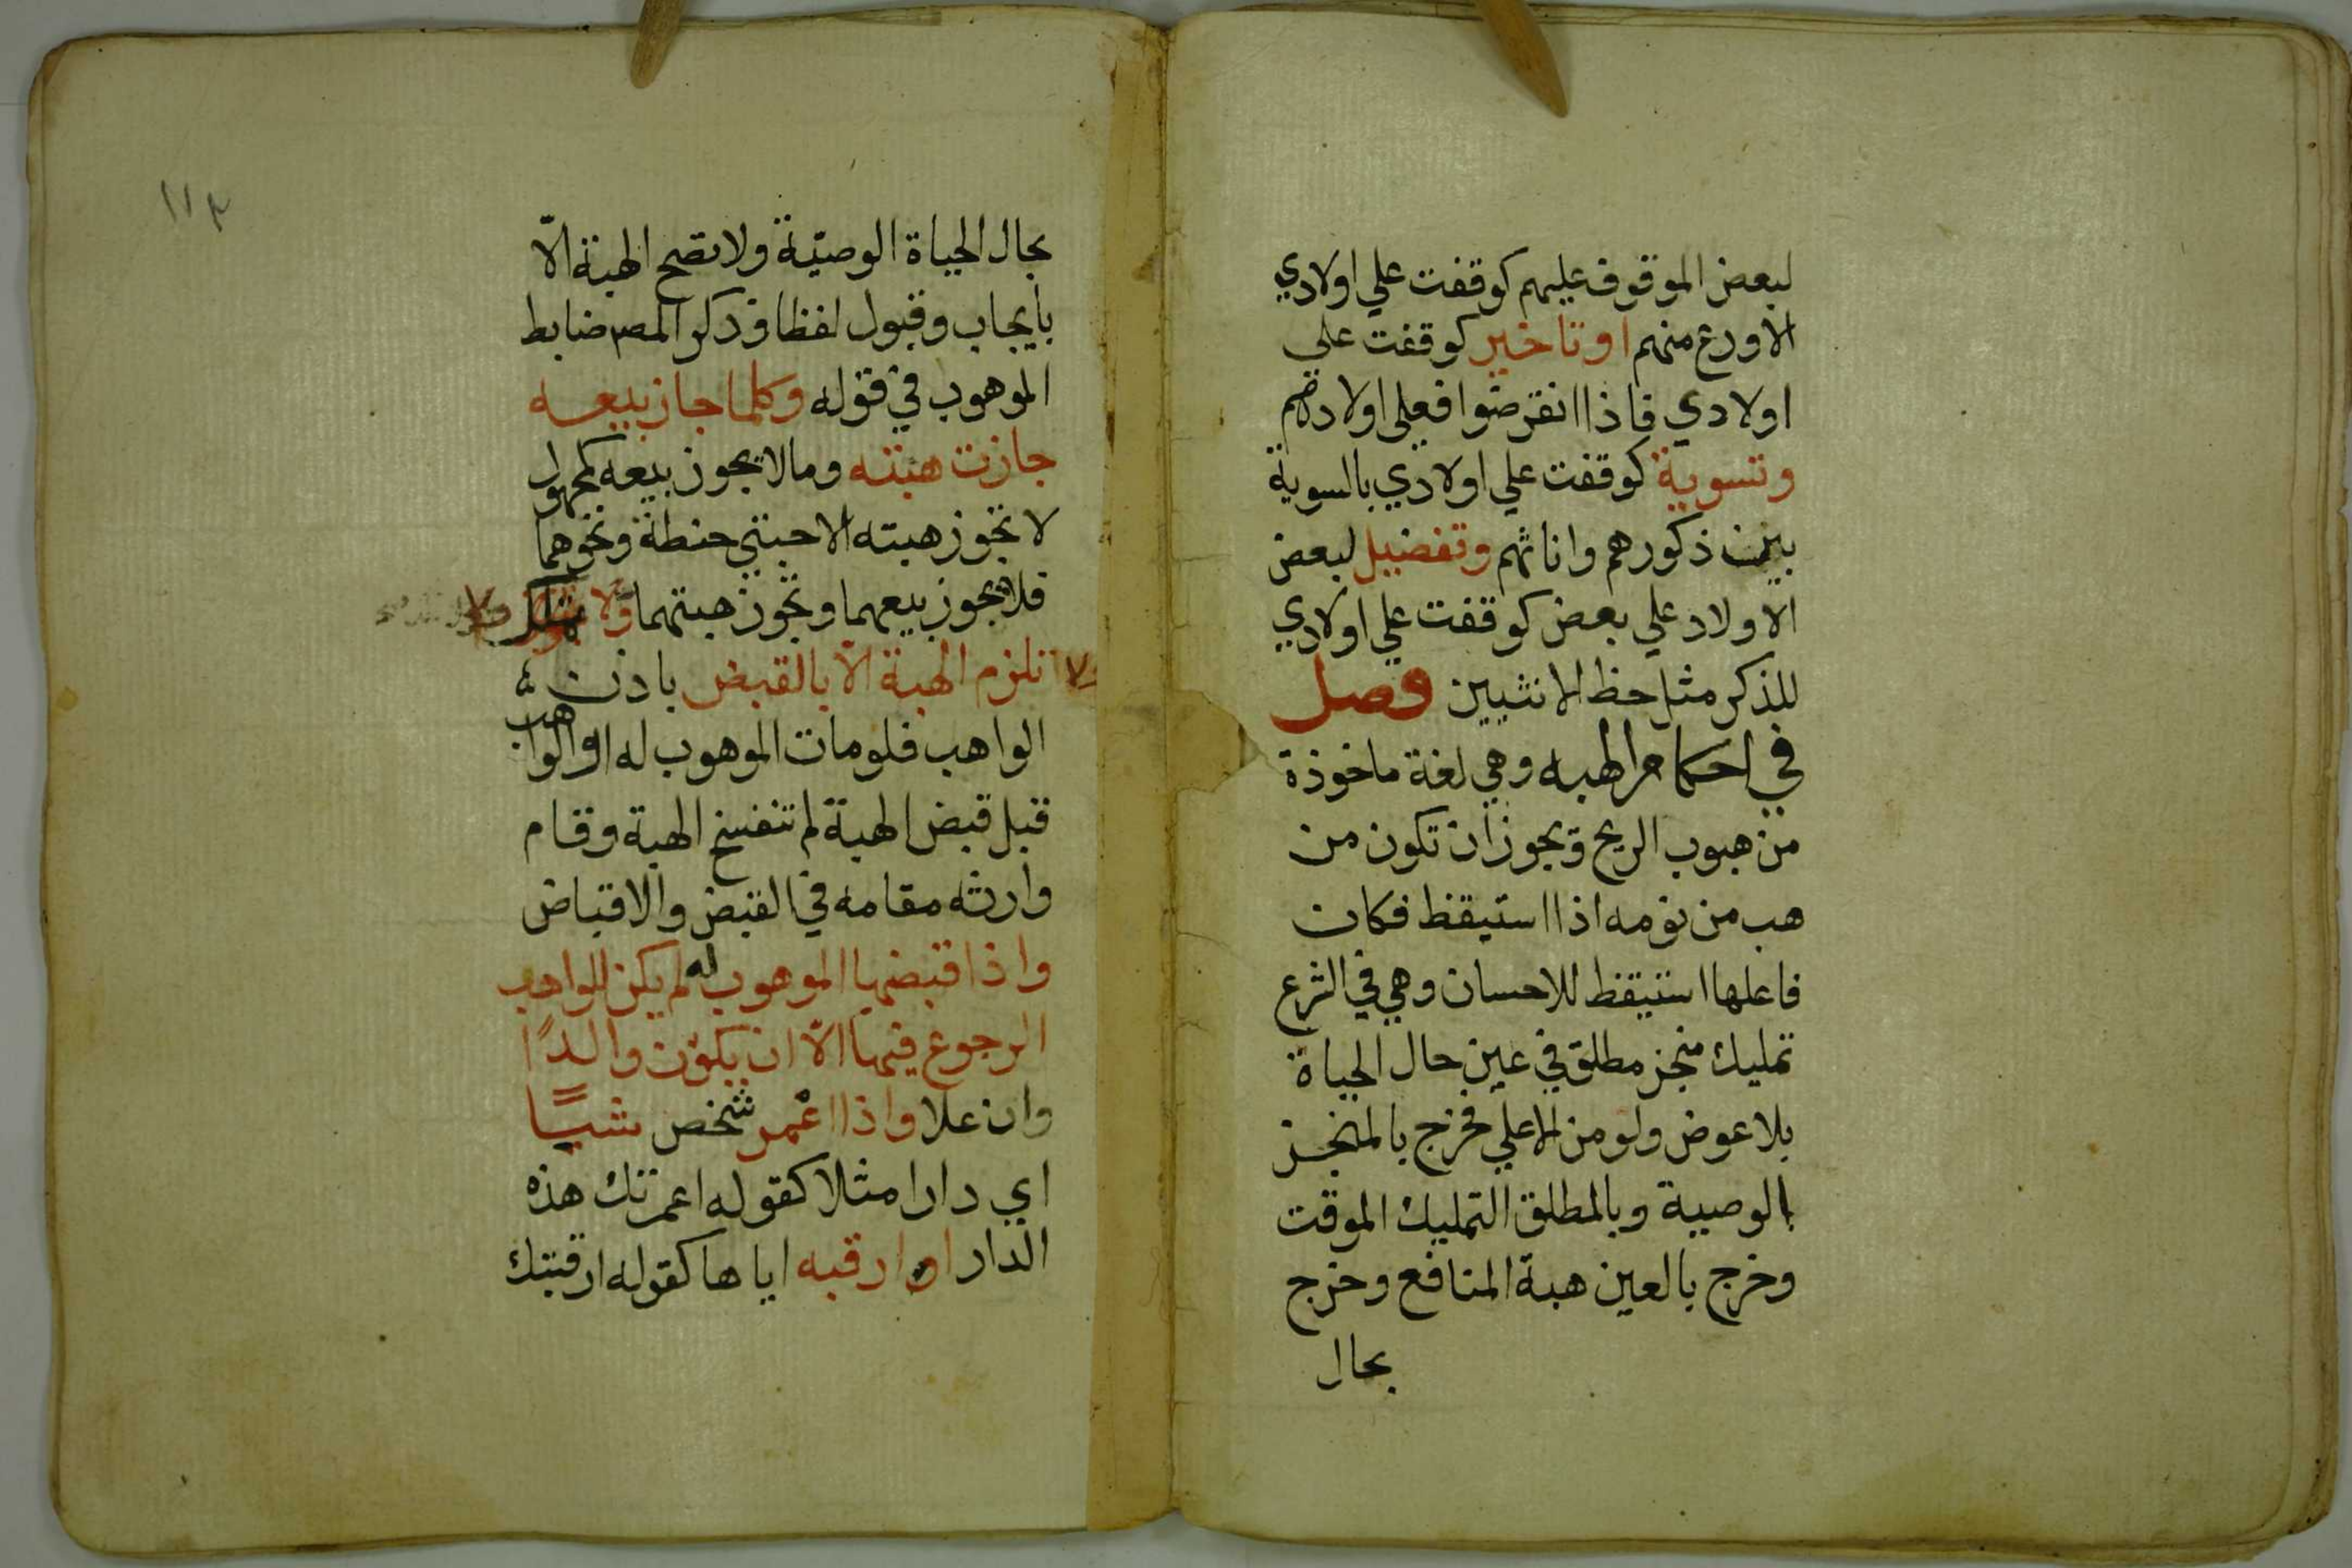 لبعض الموقوف عليهم كوقفت علي اولادي
الاورع منهم او تاخير كوقفت علي
اولادي فاذا انقرضوا فعلي اولادهم
وتسوية كوقفت علي اولادي بالسوية
بين ذكورهم واناثهم وتفضيل لبعض
الاولاد علي بعض كوقفت علي اولادي
للذكر مثل حظ الانثيين فصل
في احكام الهبه وهي لغة ماخوذة
من هبوب الريح ويجوز ان تكون من
هب من نومه اذا استيقظ فكان
فاعلها استيقظ للاحسان وهي في الشرع
تمليك منجز مطلق في عين حال الحياة
بلا عوض ولو من الاعلي فخرج بالمنجز
بالوصية وبالمطلق التمليك الموقت
وخرج بالعين هبة المنافع وخرج
بحال
١١٣
بحال الحياة الوصيّة ولا تصح الهبة الّا
بايجاب وقبول لفظا وذكر المصـ ضابط
الموهوب في قوله وكلما جاز بيعه
جازت هبته وما لا يجوز بيعه كمجهول
لا تجوز هبته الا حبتي حنطة ونحوهما
فلا يجوز بيعهما وتجوز هبتهما ولا
تلزم الهبة الّا بالقبض باذن
الواهب فلو مات الموهوب له او الواهب
قبل قبض الهبة لم تنفسخ الهبة وقام
وارثه مقامه في القبض والاقباض
واذا قبضها الموهوب له لم يكن للواهب
الرجوع فيها الّا ان يكون والدًا
وان علا واذا اعمر شخص شيـًٔا
اي دارا مثلا كقوله اعمرتك هذه
الدار او ارقبه اياها كقوله ارقبتك